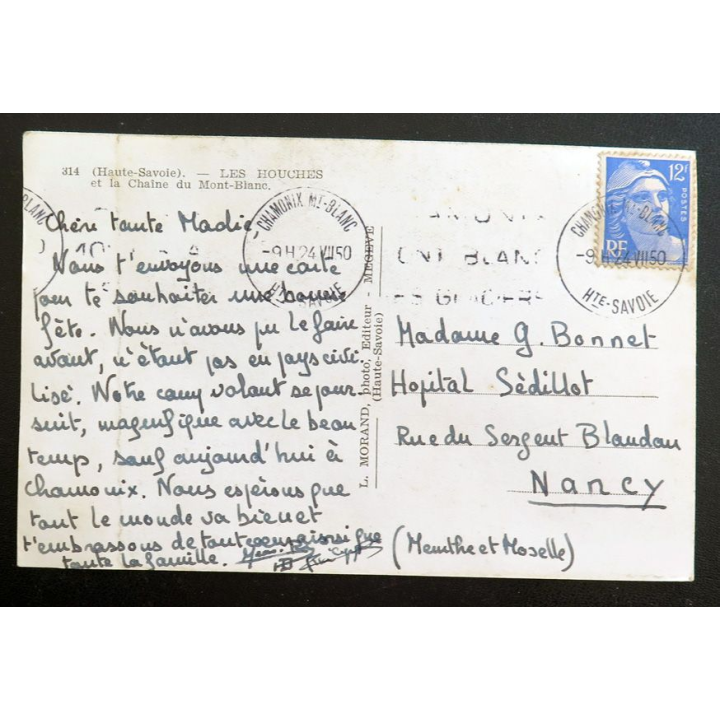 314 (Haute-Savoie). — LES HOUCHES
et la Chaîne du Mont-Blanc.
Chère tante Madie
Nous t'envoyons une carte
pour te souhaiter une bonne
fête. Nous n'avons pu le faire
avant, n'étant pas en pays civi-
lisé. Notre camp volant se pour-
suit, magnifique avec le beau
temps, sauf aujourd'hui à
Chamonix. Nous espérons que
tout le monde va bien et
t'embrassons de tout coeur ainsi que
toute la famille.
L. MORAND, photo, Editeur - MEGEVE
(Haute-Savoie)
CHAMONIX MT-BLANC
-9H.24 VII50
HTE-SAVOIE
12F
POSTES
RF
CHAMONIX MT-BLANC
-9H.24 VII50
HTE-SAVOIE
Madame G. Bonnet
Hopital Sédillot
Rue du Sergent Blandan
Nancy
(Meurthe et Moselle)